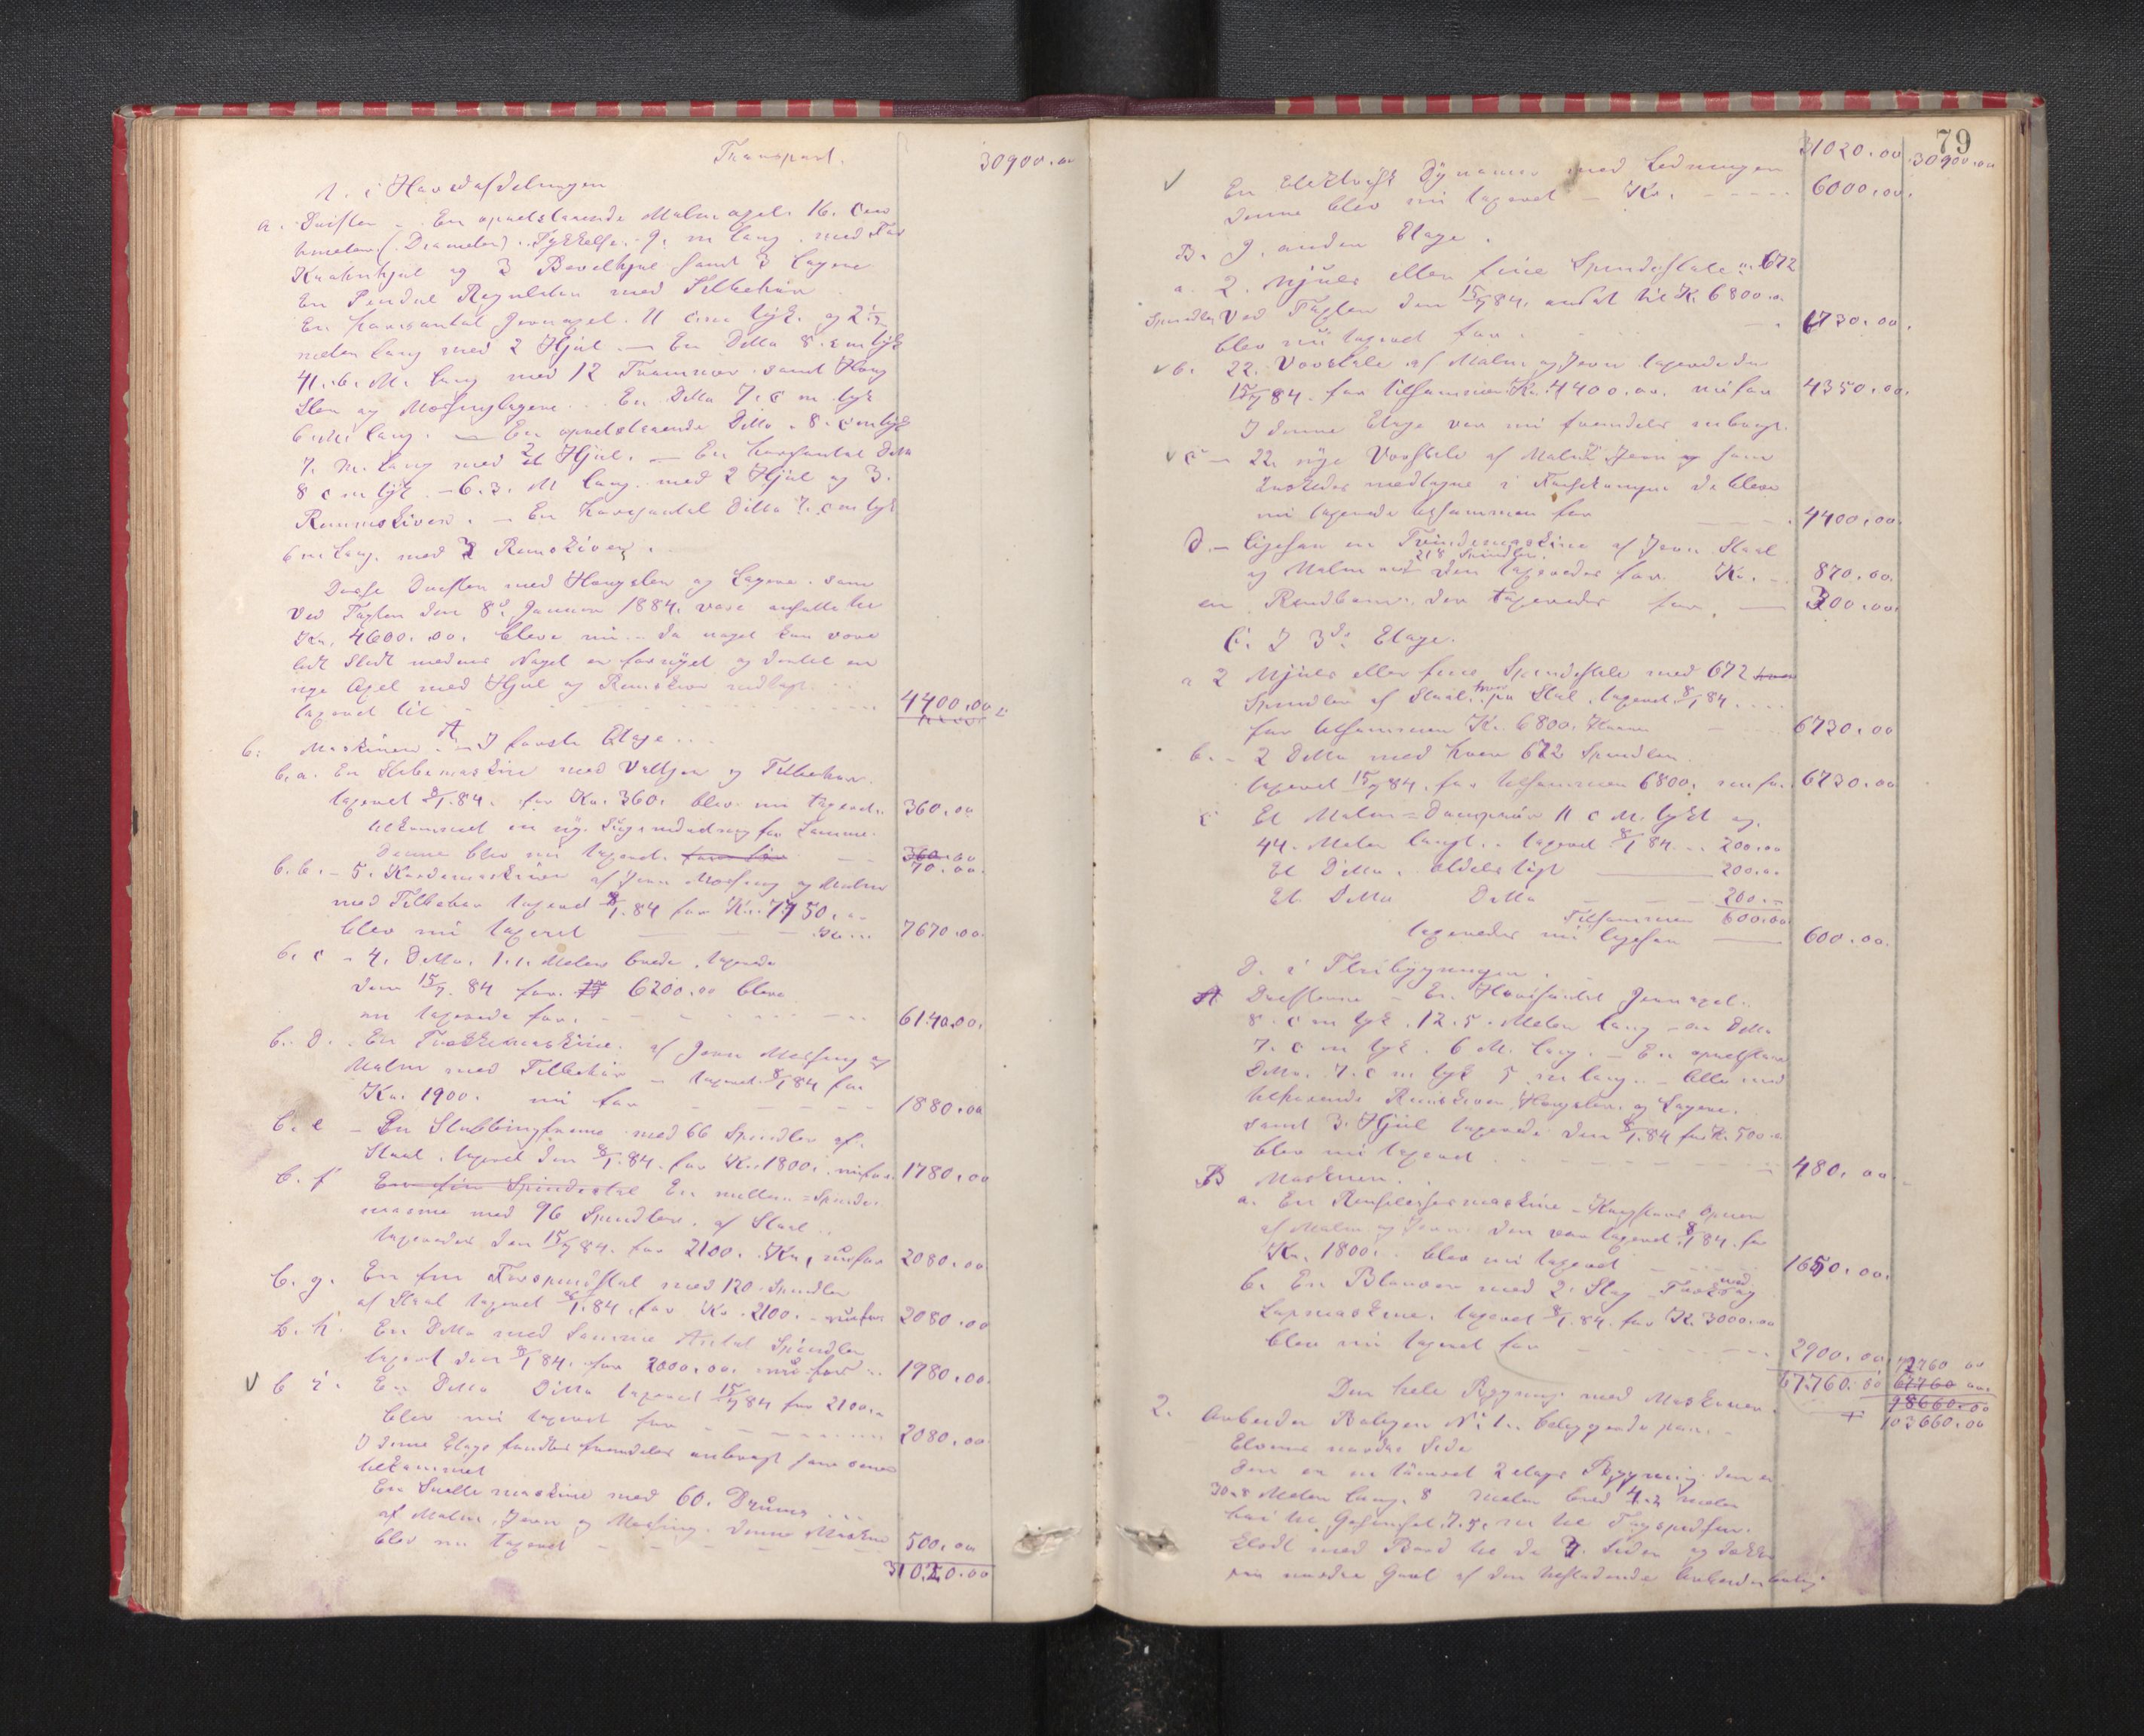 Transport. 30900.00
1. i Hovedafdelingen
a. Driften - En opretstaaende Malm axel. 16. Cen
timeter (Diameter). Tykkelse. 9. m lang. med
og 3 Bevelhjul samt 3 Lagere
En Pendul Regulator med Tilbehør
En horisontal Jernaxel. 11 c.m tyk. og 2 1/2
meter lang med 2 Hjul. — En Ditto 8. c m tyk
41.6. M. lang med 12 Trommer samt Hæng
Slen og Messinglagere. En Ditto 7. c m tyk
6 M. lang. — En opretstaaende Ditto. 8. c m tyk
7. M. lang med 2 Hjul. — En horisontal Ditto
8 c m tyk. - 6.3. M lang. med 2 Hjul og 3.
Remmskiver. — En horisontal Ditto 7. c m tyk
6 m lang. med 3 Remskiver.
Disse Driften med Hængslen og Lagere. som
ved Taxten den 8de Januar 1884. vare ansatte til
Kr. 4600.00. bleve nu - da noget kan være
lidt Slidt medens Noget er fornyet og desuden en
nye Axel med Hjul og Remskive indlagt
taxeret til 4400.00
b. Maskiner A I første Etage
b. a. En med og Tilbehør.
taxeret 8/1.84. for Kr. 360. blev nu taxeret. 360.00
tilkommet en ny for Samme.
Denne blev nu taxeret. 70.00.
b. b. - 5. Kardemaskiner af Jern Messing og Malm
med Tilbehør taxeret 8/1.84 for Kr. 7750.
blev nu taxeret 7670.00.
b. c - 4. Ditto. 1.1. Meters brede. taxerede
den 15/7. 84 for. 6200.00 bleve
nu taxerede for. 6140.00.
b. d. En Trækkemaskine. af Jern Messing og
Malm med Tilbehør - taxeret. 8/1 84 for
Kr. 1900. nu for 1880.00
b. e - En Slubbingframe med 66 Spindler af.
Staal. taxeret den 8/1.84. for Kr. 1800. nu for 1780.00
b. f En fin Spindestol En mellem=Spinde-
masine med 96 Spindler. af Staal.
taxeredes den 15/7 84. for 2100. Kr. nu for 2080.00
b. g. En fin Forspindstol med 120 Spindler
af Staal taxeret 8/1.84. for Kr. 2100. - nu for 2080.00
b. h. En Ditto med Samme Antal Spindler
taxeret den 8/1 84. for 2000.00. nu for 1980.00.
b i. En Ditto Ditto taxeret 15/7 84 for 2100.
blev nu taxeret for 2080.00
I denne Etage fandtes fremdeles anbragt som senere
tilkommet
En Snelle maskine med 60. Drums
af Malm, Jern og Messing. Denne Maskine
blev nu taxeret 500.00
31020.00
79
31020.00 30900.00
En Elektrisk Dynamo med Ledninger
Denne blev nu taxeret - Kr. 6000.00.
B. I. anden Etage.
a. 2. Mjuls eller fine Spindestole m. 672
Spindler Ved Taxten den 15/7 84. ansat til Kr 6800.00
blev nu taxeret for. 6730.00.
b. 22. Vævstole af Malm og Jern taxerede den
15/7 84. for tilsammen Kr. 4400.00. nu for 4350.00.
I denne Etage var nu fremdeles anbragt.
c - 22. nye Vævstole af Malm Jern og som
medtagne i de bleve
nu taxerede tilsammen for 4400.00.
d. - ligesaa en Tvindemaskine af Jern Staal
218 Spindler.
og Malm med den taxeredes for Kr. 870.00.
en Rendbom. den taxeredes for. 300.00.
C. I 3de Etage.
a 2 Mjuls eller fine Spindestole med 672
Spindler af Staal. hver pr Stol. taxeret 8/1 84
for tilsammen Kr. 6800. Kroner 6730.00
b. - 2 Ditto med hver 672 Spindler
taxeret 15/7 84. for tilsammen 6800. nu for 6730.00
c Et Malm=Damprør 11 c M. tykt og.
44. Meter langt. - taxeret 8/1 84 200.00
Et Ditto. aldeles ligt 200.00
Et. Ditto Ditto 200.-
Tilsammen 600.00
taxeredes nu ligesaa 600.00.
D. i Tilbygningen.
A Driftene - En Horisontal Jern axel.
8. c m tyk. 12.5. Meter lang - en Ditto
7. c m tyk. 6 M. lang. - En opretstaa
Ditto. 7. c m tyk 5 m lang. - Alle med
tilhørende Remskiver Hængslen. og Lagere.
samt 3. Hjul taxerede den 8/1.84 for Kr. 500.00
blev nu taxeret 480.00
B Maskiner.
a. En Renselsesmaskine - Opner
af Malm og Jern. den var taxeret 8/1 84. for
Kr. 1800. blev nu taxeret 1650.00.
b. En Blauver med 2. Slag med
Lapmaskine. taxeret 8/1.84. for Kr. 3000.00
blev nu taxeret for 2900.00 72760 00
67760.00 67760 00.
Den hele Bygning med Maskiner. 98660.00
103660.00
2. Arbeider Boligen No 1. beliggende paa
Elvens nordre Side
Den er en tømret 2 etages Bygning. den er
30.8 Meter lang. 8 meter bred 4.2 meter
høi til Gesimsen. 7.5. m til Tagspidsen.
Klædt med Bord til de 3. Sider og dækket
paa nordre Gavl af den tilstødende Arbeiderbolig.